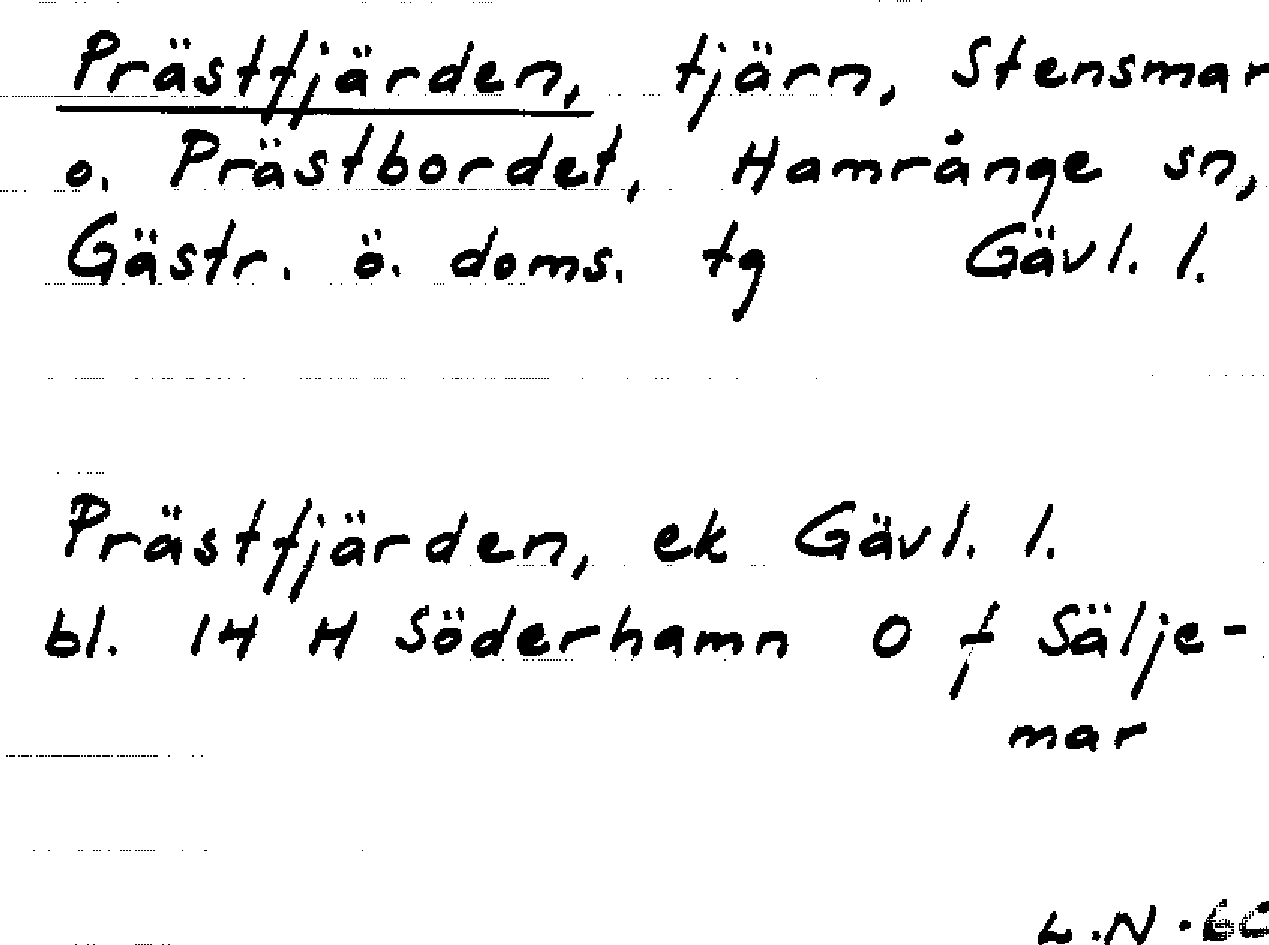 Prästfjärden, tjärn, Stensmar
o. Prästbordet, Hamrånge sn,
Gästr. ö. doms. tg Gävl. l.
Prästfjärden, ek Gävl. l.
bl. 14 H Söderhamn O f Sälje-
mar
L.N.